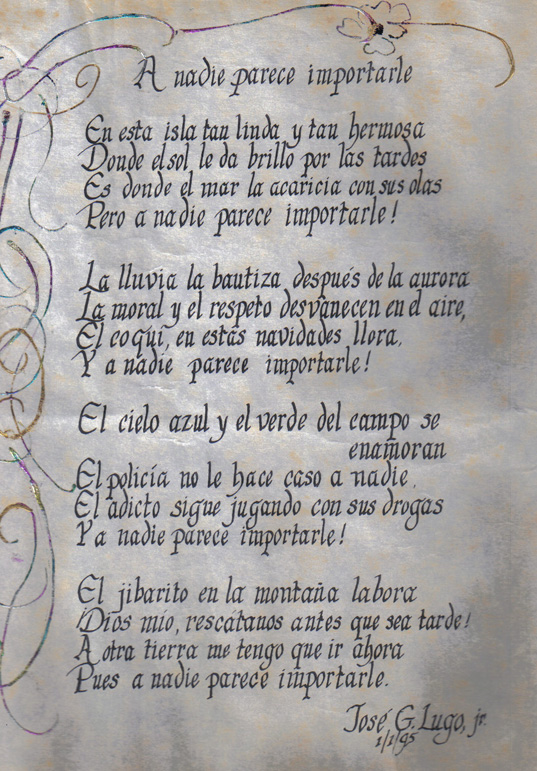 A nadie parece importarle
En esta isla tan linda y tan hermosa
Donde el sol le da brillo por las tardes
Es donde el mar la acaricia con sus olas
Pero a nadie parece importarle!
La lluvia la bautiza después de la aurora
La moral y el respeto desvanecen en el aire,
El coquí, en estas navidades llora,
Y a nadie parece importarle!
El cielo azul y el verde del campo se
enamoran
El policía no le hace caso a nadie,
El adicto sigue jugando con sus drogas
Y a nadie parece importarle!
El jibarito en la montaña labora
¡Dios mío, rescátanos antes que sea tarde!
A otra tierra me tengo que ir ahora
Pues a nadie parece importarle.
José G. Lugo, jr.
1/1/95